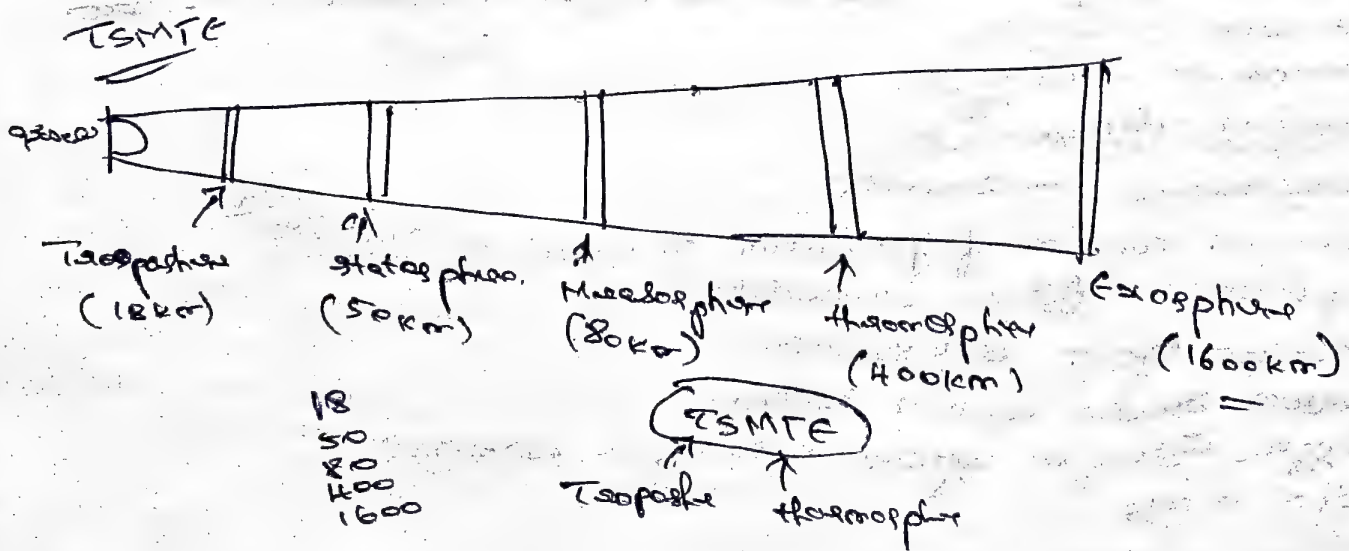 TSMTE
Troposphere
(18km)
Statosphere.
(50km)
Measosphere
(80km)
thermosphere
(400km)
Exosphere
(1600km)
18
50
80
400
1600
TSMTE
thermosphere